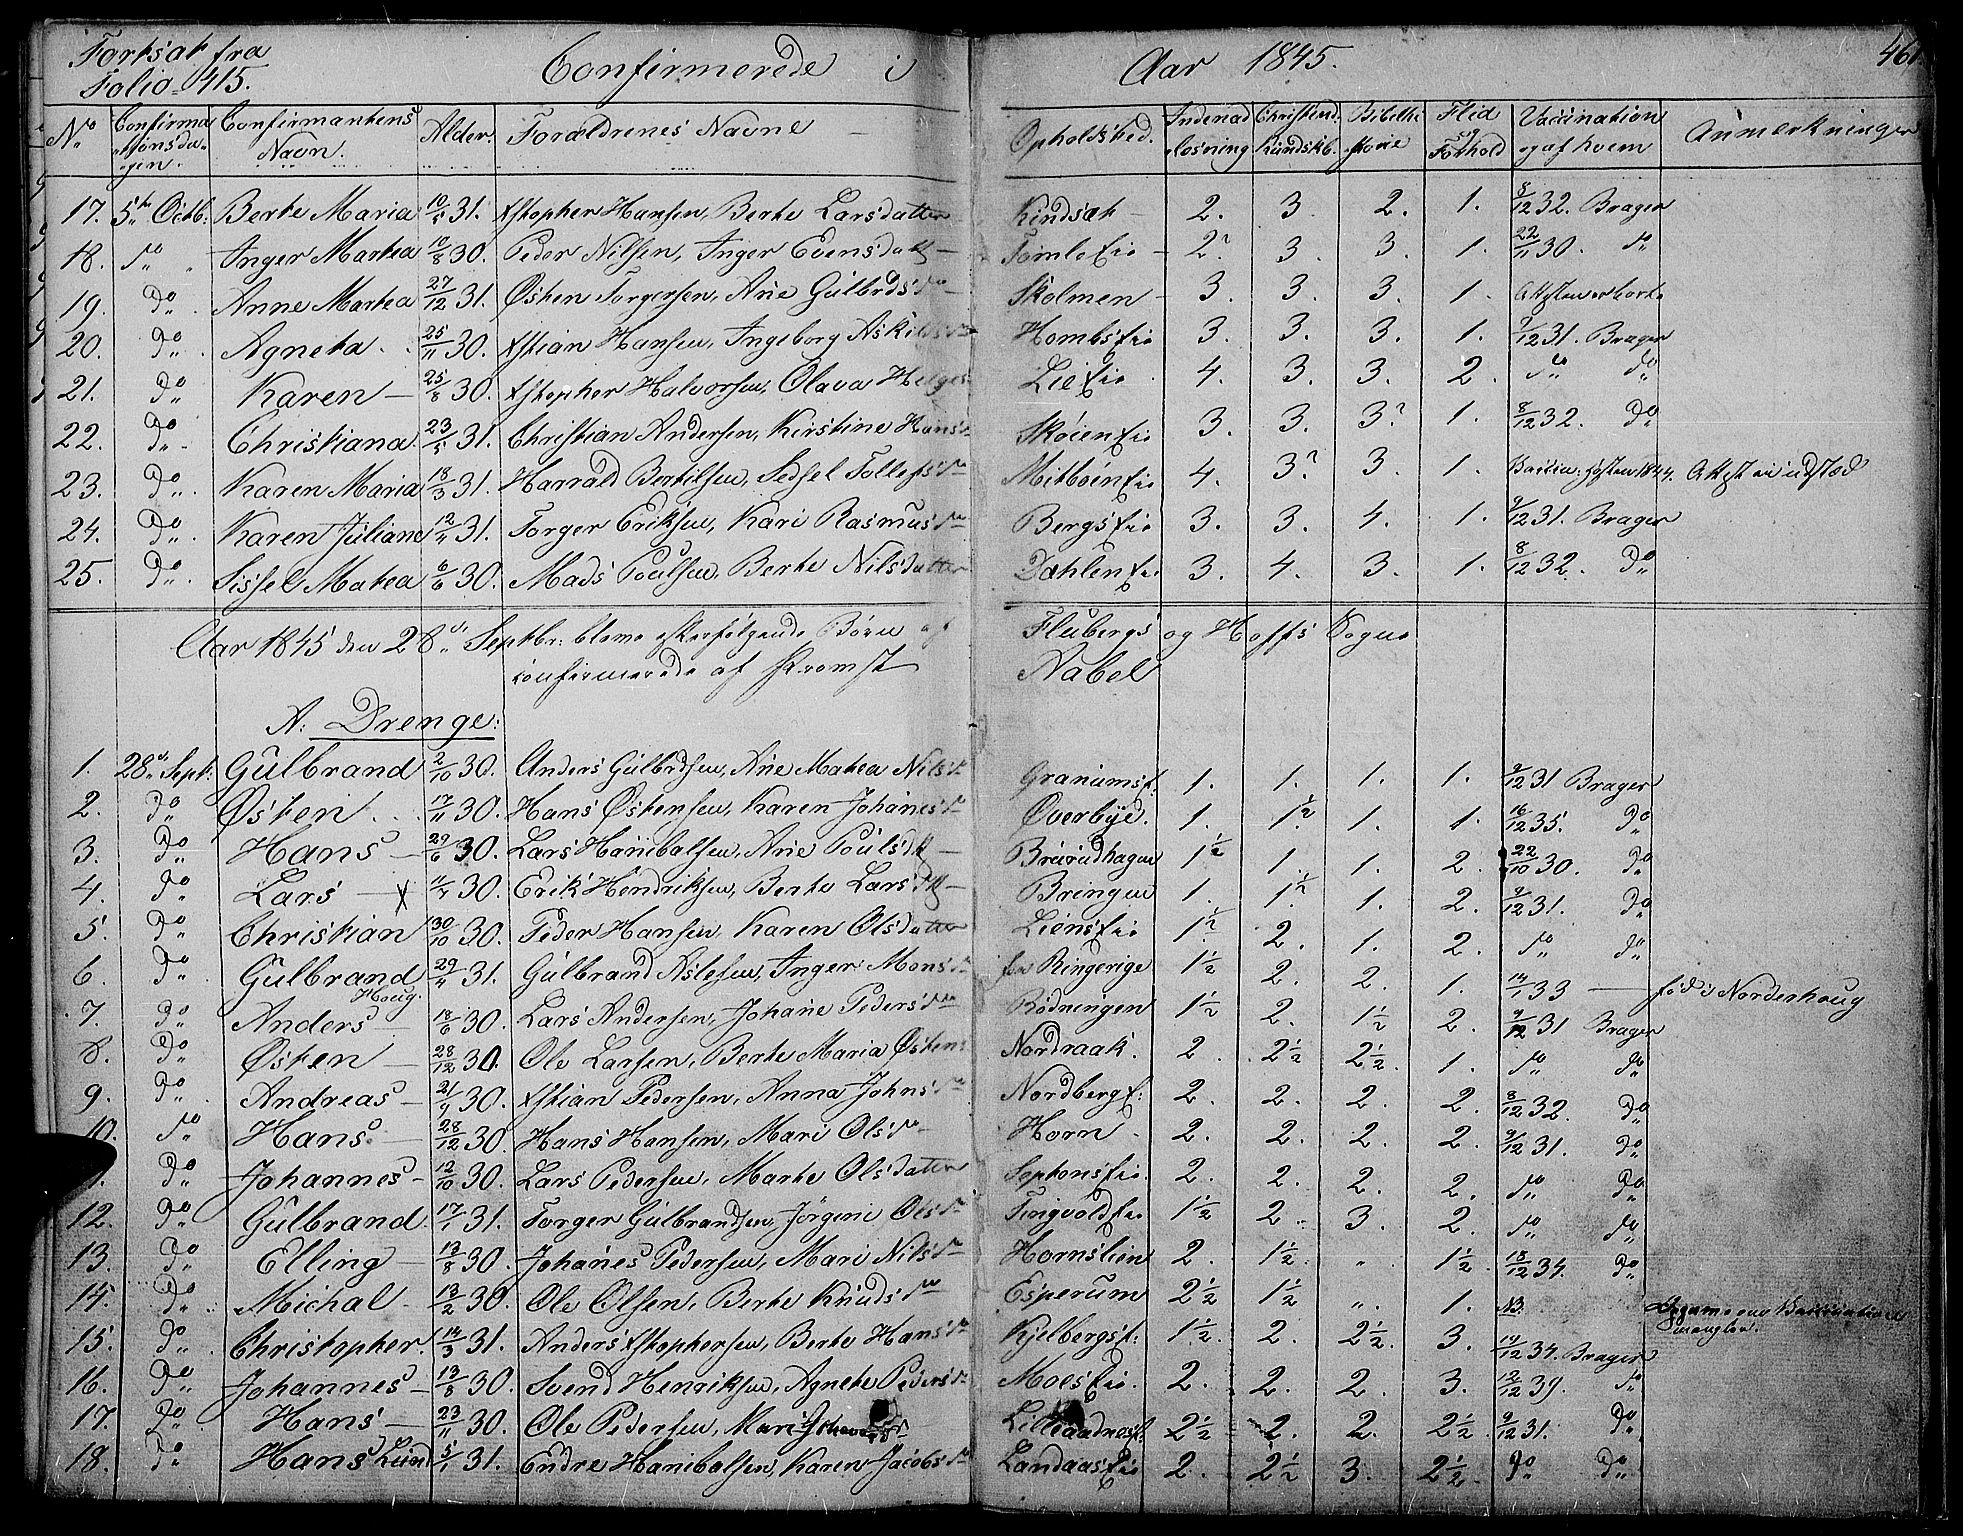 Fortsat fra
Folio 415.
Confirmerede i Aar 1845.
461.
No Confirmationsdagen. Confirmantens Navn. Alder. Forældrenes Navne Opholdsted. Indenadlæsning Christend. Kundskb. Bibelhistorie Flid og Forhold Vaccination og af hvem Anmerkninger
17. 5te Octb: Berte Maria 10/5 31. Xstopher Hansen, Berte Larsdatter Kindsæt 2. 3. 2. 1. 8/12 32. Brager
18. do Inger Martea 10/8 30. Peder Nilsen, Inger Evensdatt Tomleeie 2? 3. 3. 1. 22/11 30. do
19. do Anne Martea 27/12 31. Østen Torgersen, Ane Gulbrdsdr Skolmen 3. 3. 3. 1. Attesten er borte
20. do Agneta 25/11 30. Xstian Hansen, Ingeborg Askildsdr Hombseie 3. 3. 3. 1. 9/12 31. Brager
21. do Karen 25/8 30. Xstopher Halvorsen, Olava Helges Lieeie 4. 3. 3. 2. do do
22. do Christiana 23/5 31. Christian Andersen, Kirstine Hansd Skøieneie 3. 3. 3? 1. 8/12 32. do
23. do Karen Maria 18/3 31. Harrald Bertilsen, Sedsel Tollefsdr Mitbøineie 4. 3? 3. 1. Vaccin: høsten 1844. Attest ei udstæd
24. do Karen Juliane 12/4 31. Torger Eriksen, Kari Rasmusdr Bergseie 3. 3. 4. 1. 9/12 31. Brager
25. do Sissel Matea 6/6 30. Mads Poulsen, Berte Nilsdatter Dæhleneie 3. 4. 3. 1. 8/12 32. do
Aar 1845 den 28de Septbr: bleve efterfølgende Børn af Flubergs og Hoffs Sogne
confirmerede af Provst Nabel
A: Drenge:
1. 28de Sept: Gulbrand 2/10 30. Anders Gulbrdsen, Ane Matea Nilsdr Granumse. 1. 1. 1. 1. 9/12 31 Brager
2. do Østen 17/11 30. Hans Østensen, Karen Johanesdr Øverbye. 1. 1½ 1. 1. 16/12 35. do
3. do Hans 29/6 30. Lars Hanibalsen, Ane Poulsdtt Brurudhagen 1½ 1. 1. 2. 22/10 30. do
4. do Lars X 11/7 30. Erik Hendriksen, Berte Larsdtt Bringen 1. 1½ 1. 2. 9/12 31. do
5. do Christian 30/10 30. Peder Hansen, Karen Olsdatter Lienseie 1½ 2. 1. 2. do do
6. do Gulbrand 29/4 31. Gulbrand Aslesen, Inger Monsdr fra Ringerige 1½ 2. 2. 1. 14/1 33 — fød i Norderhoug
7. do Anders Houg. 18/6 30. Lars Andersen, Johane Pedersdr Rødningen 1½ 2. 1½ 2. 9/12 31 Brager
8. do Østen 28/12 30. Ole Larsen, Berte Maria Østens Nordraak. 2. 2½ 2½ 1. do do
9. do Andreas 21/9 30. Xstian Pedersen, Anna Johnsdr Nordberge: 2. 2. 2. 2. 8/12 32. do
10. do Hans 28/12 30. Hans Hansen, Mari Olsdr Horn 2. 2. 2. 2. 9/12 31. do
do Johannes 12/10 30. Lars Pedersen, Marte Olsdatter Septonseie 2. 2. 2. 2. do do
12. do Gulbrand. 17/1 31. Torger Gulbrandsen, Jørgine Olsdr Tingvoldeie 1½ 2. 3. 2. do do
13. do Elling 13/8 30. Johanes Pedersen, Mari Nilsdr Hornslien 2. 1½ " 1½ 18/12 34. do
14. do Michal 13/2 30. Ole Olsen, Berte Knudsdr Esperum 2½ 1½ " 1. NB. Beviis om Vaccination mangler.
15. do Christopher. 14/3 31. Anders Xstophersen, Berte Hansdr Kjelbergse: 1½ 2. 2½ 3. 14/12 34. Brager
16. do Johannes 13/8 30. Svend Henriksen, Agnete Pedersdr Moeseie. 2. 2. 2. 3. 12/12 39. do
17. do Hans 23/11 30. Ole Pedersen, Mari 2½ 2. 2. 2½ 9/12 31. do
18. do Hans Lund 5/1 31. Endre Hanibalsen, Karen Jacobsdr Landaaseie 2. 2½ 3. 2½ do do